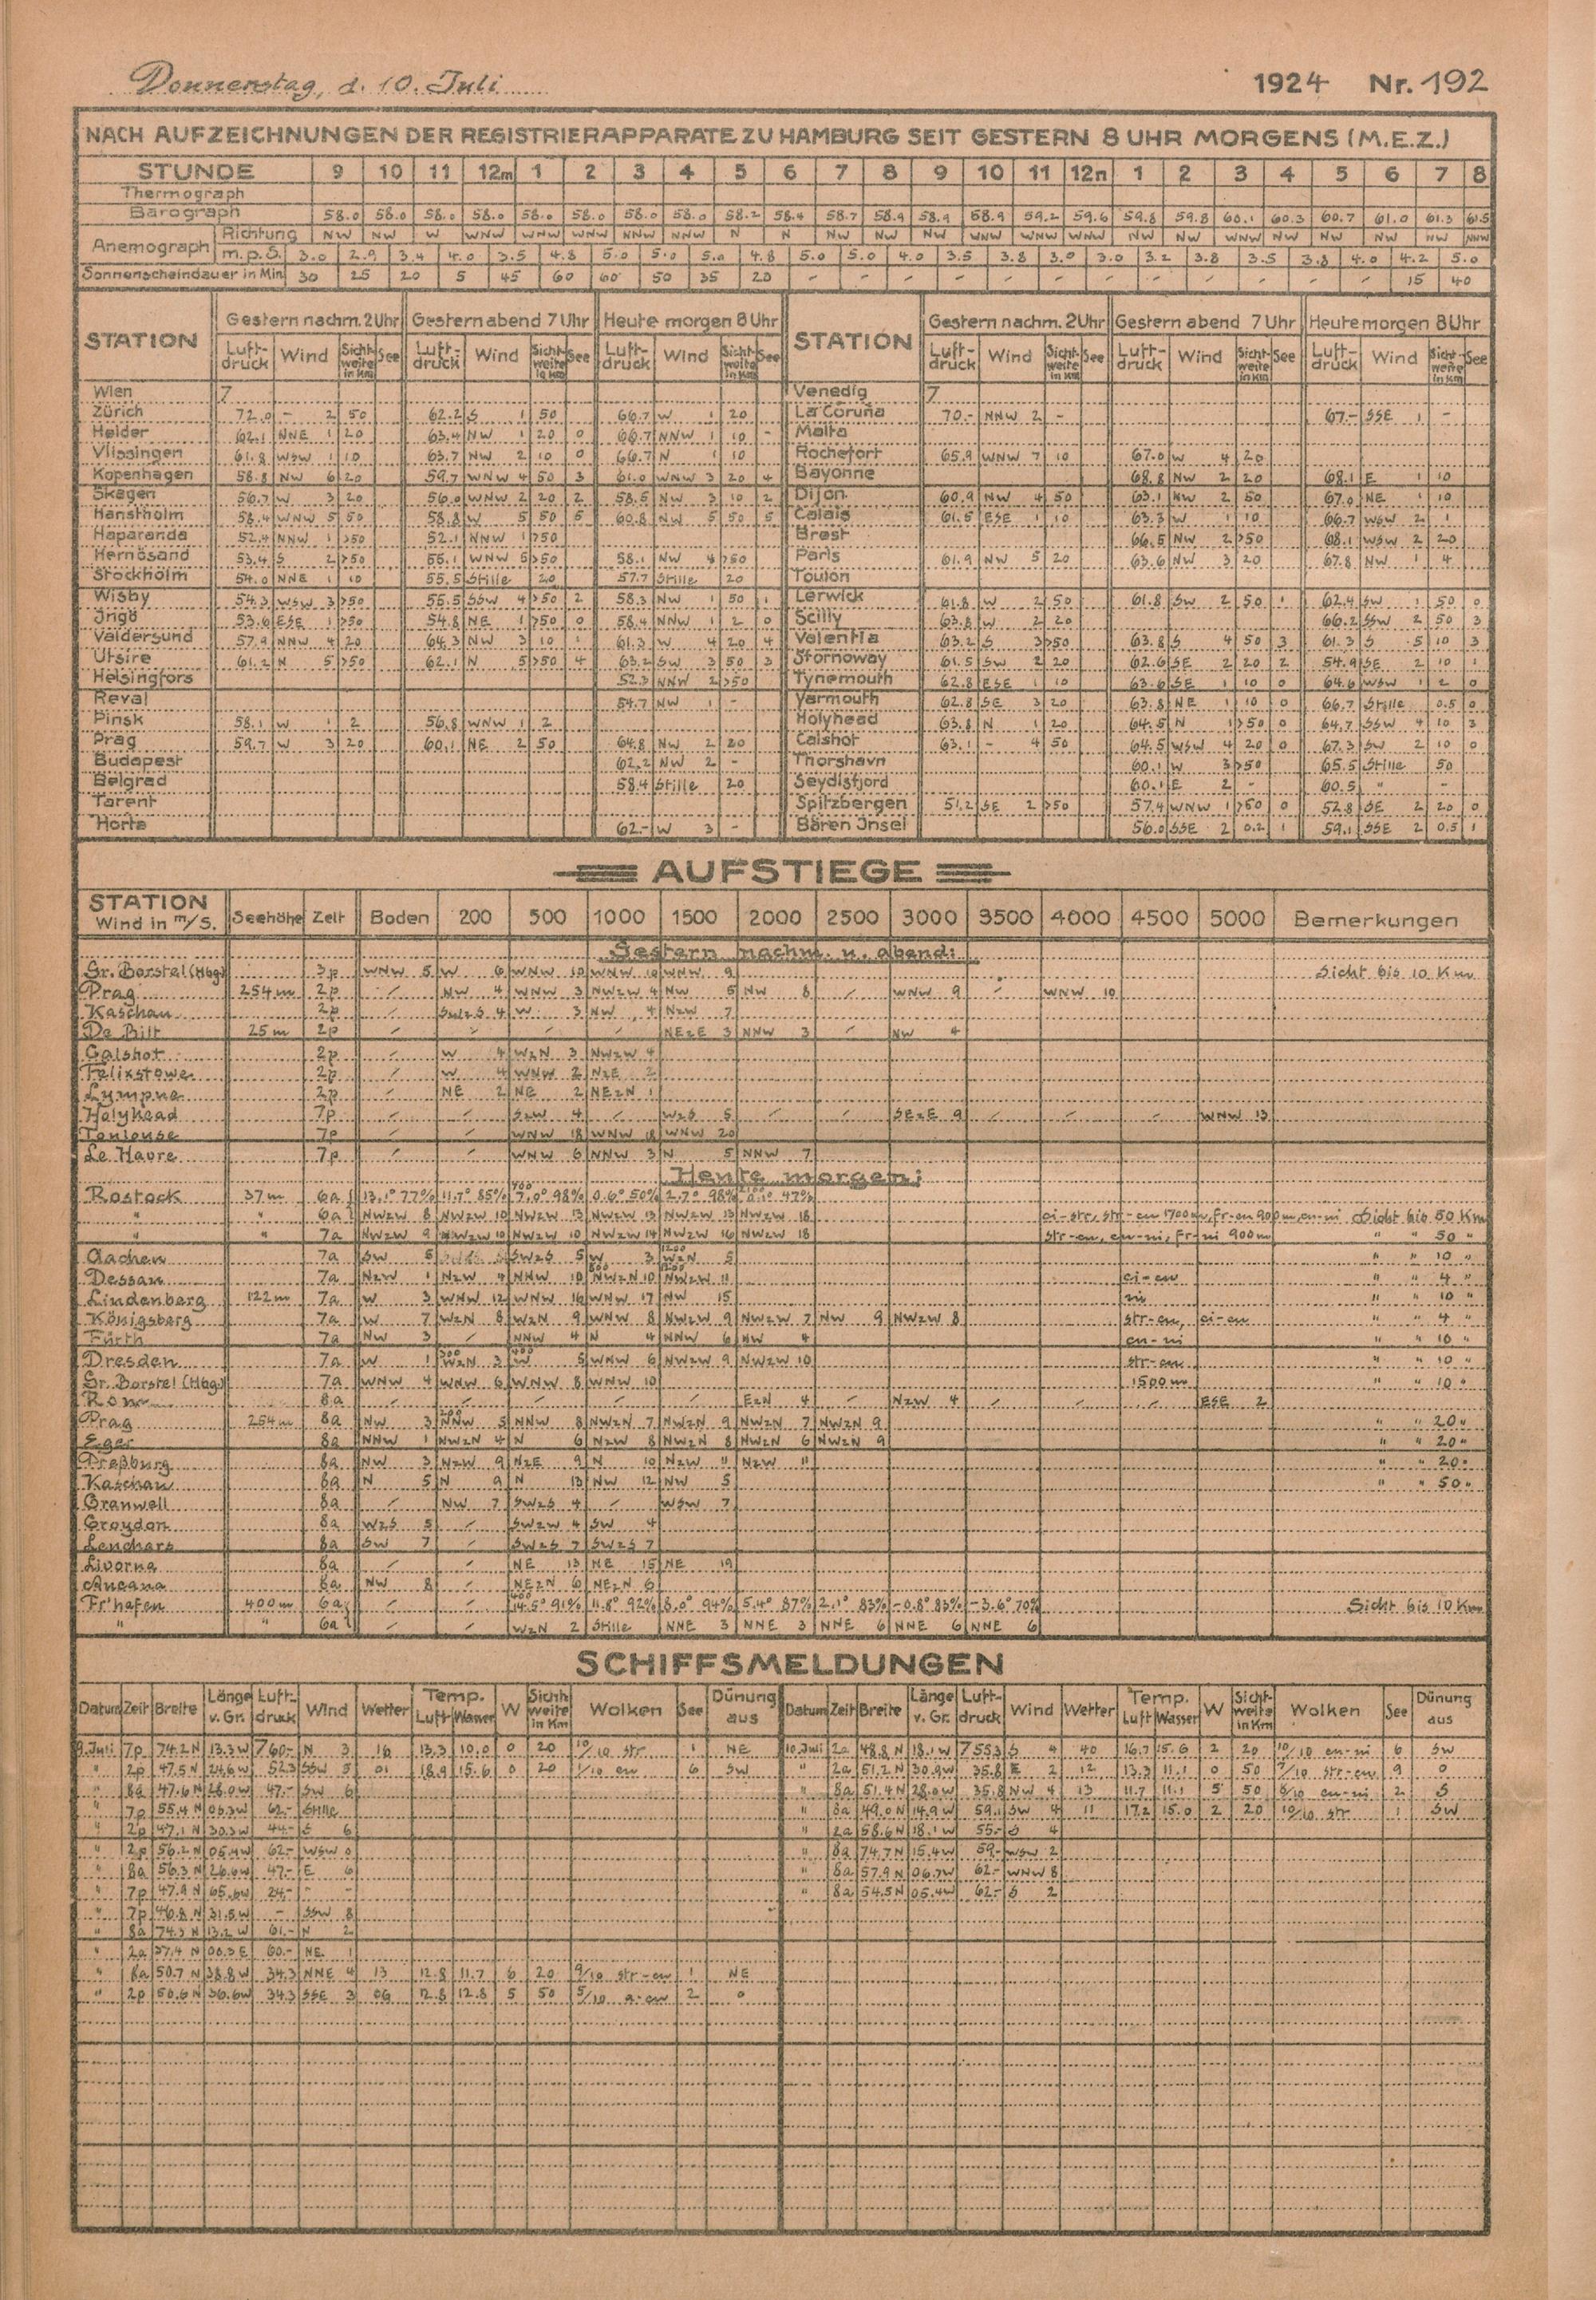 Donnerstag, d. 10. Juli 1924 Nr. 192
NACH AUFZEICHNUNGEN DER REGISTRIERAPPARATE ZU HAMBURG SEIT GESTERN 8 UHR MORGENS (M.E.Z.)
STUNDE 9 10 11 12m 1 2 3 4 5 6 7 8 9 10 11 12n 1 2 3 4 5 6 7 8
Thermograph
Barograph 58.0 58.0 58.0 58.0 58.0 58.0 58.0 58.0 58.2 58.4 58.7 58.9 58.9 58.9 59.2 59.6 59.8 59.8 60.1 60.3 60.7 61.0 61.3 61.5
Anemograph Richtung NW NW W WNW WNW WNW NNW NNW N N NW NW NW WNW WNW WNW NW NW WNW NW NW NW NW NNW
m.p.S. 3.0 2.9 3.4 4.0 3.5 4.8 5.0 5.0 5.0 4.8 5.0 5.0 4.0 3.5 3.8 3.0 3.0 3.2 3.8 3.5 3.8 4.0 4.2 5.0
Sonnenscheindauer in Min. 30 25 20 5 45 60 60 50 35 20 - - - - - - - - - - - - 15 40
STATION Gestern nachm. 2 Uhr Gestern abend 7 Uhr Heute morgen 8 Uhr STATION Gestern nachm. 2 Uhr Gestern abend 7 Uhr Heute morgen 8 Uhr
Luft-druck Wind Sicht-weite in km See Luft-druck Wind Sicht-weite in km See Luft-druck Wind Sicht-weite in km See Luft-druck Wind Sicht-weite in km See Luft-druck Wind Sicht-weite in km See Luft-druck Wind Sicht-weite in km See
Wien 7 Venedig 7
Zürich 72.0 - 2 50 62.2 S 1 50 66.7 W 1 20 La Coruña 70.- NNW 2 - 67.- SSE 1 -
Helder 62.1 NNE 1 20 63.4 NW 1 20 0 66.7 NNW 1 10 - Malta
Vlissingen 61.8 WSW 1 10 63.7 NW 2 10 0 66.7 N 1 10 Rochefort 65.9 WNW 7 10 67.0 W 4 20
Kopenhagen 58.8 NW 6 20 59.7 WNW 4 50 3 61.0 WNW 3 20 4 Bayonne 68.8 NW 2 20 68.1 E 1 10
Skagen 56.7 W 3 20 56.0 WNW 2 20 2 58.5 NW 3 10 2 Dijon 60.9 NW 4 50 63.1 NW 2 50 67.0 NE 1 10
Hanstholm 58.4 WNW 5 50 58.8 W 5 50 5 60.8 NW 5 50 5 Calais 61.5 ESE 1 10 63.3 W 1 10 66.7 WSW 2 1
Haparanda 52.4 NNW 1 >50 52.1 NNW 1 >50 Brest 66.5 NW 2 >50 68.1 WSW 2 20
Hernösand 53.4 S 2 >50 55.1 WNW 5 >50 58.1 NW 4 >50 Paris 61.9 NW 5 20 63.6 NW 3 20 67.8 NW 1 4
Stockholm 54.0 NNE 1 10 55.5 Stille 20 57.7 Stille 20 Toulon
Wisby 54.3 WSW 3 >50 55.5 SSW 4 >50 2 58.3 NW 1 50 1 Lerwick 61.8 W 2 50 61.8 SW 2 50 1 62.4 SW 1 50 0
Ingö 53.6 ESE 1 >50 54.8 NE 1 >50 0 58.4 NNW 1 2 0 Scilly 63.8 W 2 20 66.2 SSW 2 50 3
Valdersund 57.9 NNW 4 20 64.3 NW 3 10 1 61.3 W 4 20 4 Valentia 63.2 S 3 >50 63.8 S 4 50 3 61.3 S 5 10 3
Utsire 61.2 N 5 >50 62.1 N 5 >50 4 63.2 SW 3 50 3 Stornoway 61.5 SW 2 20 62.6 SE 2 20 2 54.9 SE 2 10 1
Helsingfors 52.3 NNW 2 >50 Tynemouth 62.8 ESE 1 10 63.6 SE 1 10 0 64.6 WSW 1 2 0
Reval 54.7 NW 1 - Yarmouth 62.8 SE 3 20 63.8 NE 1 10 0 66.7 Stille 0.5 0
Pinsk 58.1 W 1 2 56.8 WNW 1 2 Holyhead 63.8 N 1 20 64.5 N 1 >50 0 64.7 SSW 4 10 3
Prag 59.7 W 3 20 60.1 NE 2 50 64.8 NW 2 20 Calshot 63.1 - 4 50 64.5 WSW 4 20 0 67.3 SW 2 10 0
Budapest 62.2 NW 2 - Thorshavn 60.1 W 3 >50 65.5 Stille 50
Belgrad 58.4 Stille 20 Seydisfjord 60.1 E 2 - 60.5 " -
Tarent Spitzbergen 51.2 SE 2 >50 57.4 WNW 1 >50 0 52.8 SE 2 20 0
Horta 62.- W 3 - Bären Insel 56.0 SSE 2 0.2 1 59.1 SSE 2 0.5 1
AUFSTIEGE
STATION Wind in m/S. Seehöhe Zeit Boden 200 500 1000 1500 2000 2500 3000 3500 4000 4500 5000 Bemerkungen
Gestern nachm. u. abend:
Gr. Borstel (Hbg) 3p WNW 5 W 6 WNW 10 WNW 10 WNW 9 Sicht bis 10 Km
Prag 254m 2p - NW 4 WNW 3 NWzW 4 NW 5 NW 8 - WNW 9 - WNW 10
Kaschau 2p - SWzS 4 W 3 NW 4 NzW 7
De Bilt 25m 2p - - - - NEzE 3 NNW 3 - NW 4
Calshot 2p - W 4 WzN 3 NWzW 4
Felixstowe 2p - W 4 WNW 2 NzE 2
Lympne 2p - NE 2 NE 2 NEzN 1
Holyhead 7p - - SzW 4 - WzS 5 - - SEzE 9 - - - WNW 13
Toulouse 7p - - WNW 18 WNW 18 WNW 20
Le Havre 7p - - WNW 6 NNW 3 N 5 NNW 7
Heute morgen:
Rostock 37m 6a 13.1° 77% 11.7° 85% 700 7.0° 98% 0.6° 50% 2.7° 98% 47%
" " 6a NWzW 8 NWzW 10 NWzW 13 NWzW 13 NWzW 13 NWzW 18 ci-str, str-cu 1700m, fr-cu 900m, cu-ni Sicht bis 50 Km
" " 7a NWzW 9 NWzW 10 NWzW 10 NWzW 14 NWzW 16 NWzW 18 str-cu, cu-ni, fr-ni 900m " " 50 "
Aachen 7a SW 5 SWzS 5 W 3 1200 WzN 5 " " 10 "
Dessau 7a NzW 1 NzW 4 NNW 10 800 NWzN 10 1200 NWzW 11 ci-cu " " 4 "
Lindenberg 122m 7a W 3 WNW 12 WNW 16 WNW 17 NW 15 ni " " 10 "
Königsberg 7a W 7 WzN 8 WzN 9 WNW 8 NWzW 9 NWzW 7 NW 9 NWzW 8 str-cu, ci-cu " " 4 "
Fürth 7a NW 3 - NNW 4 N 4 NNW 6 NW 4 cu-ni " " 10 "
Dresden 7a W 1 300 WzN 3 400 W 5 WNW 6 NWzW 9 NWzW 10 str-cu " " 10 "
Gr. Borstel (Hbg.) 7a WNW 4 WNW 6 WNW 8 WNW 10 1500m " " 10 "
Rom 8a - - - - - EzN 4 - NzW 4 - - - ESE 2
Prag 254m 8a NW 3 200 NNW 5 NNW 8 NWzN 7 NWzN 9 NWzN 7 NWzN 9 " " 20 "
Eger 8a NNW 1 NWzN 4 N 6 NzW 8 NWzN 8 NWzN 6 NWzN 9 " " 20 "
Preßburg 8a NW 3 NzW 9 NzE 9 N 10 NzW 11 NzW 11 " " 20 "
Kaschau 8a N 5 N 9 N 13 NW 12 NW 5 " " 50 "
Cranwell 8a - NW 7 SWzS 4 - WSW 7
Croydon 8a WzS 5 - SWzW 4 SW 4
Leuchars 8a SW 7 - SWzS 7 SWzS 7
Livorna 8a - - NE 13 NE 15 NE 19
Ancona 8a NW 8 - NEzN 6 NEzN 6
Fr'hafen 400m 6a - - 400 14.5° 91% 11.8° 92% 8.0° 94% 5.4° 87% 2.1° 83% -0.8° 83% -3.6° 70% Sicht bis 10 Km
" " 6a - - WzN 2 Stille NNE 3 NNE 3 NNE 6 NNE 6 NNE 6
SCHIFFSMELDUNGEN
Datum Zeit Breite Länge v. Gr. Luft-druck Wind Wetter Temp. Luft Wasser W Sicht-weite in Km Wolken See Dünung aus Datum Zeit Breite Länge v. Gr. Luft-druck Wind Wetter Temp. Luft Wasser W Sicht-weite in Km Wolken See Dünung aus
9. Juli 7p 74.2 N 13.3 W 760.- N 3 16 13.3 10.0 0 20 10/10 str 1 NE 10. Juli 2a 48.8 N 18.1 W 755.3 S 4 40 16.7 15.6 2 20 10/10 cu-ni 6 SW
" 2p 47.5 N 24.6 W 52.3 SSW 5 01 18.9 15.6 0 20 1/10 cu 6 SW " 2a 51.2 N 30.9 W 35.8 E 2 12 13.3 11.1 0 50 7/10 str-cu 9 0
" 8a 47.6 N 28.0 W 47.- SW 6 " 8a 51.4 N 28.0 W 35.8 NW 4 13 11.7 11.1 5 50 9/10 cu-ni 2 S
" 7p 55.4 N 05.3 W 62.- Stille " 8a 49.0 N 14.9 W 59.1 SW 4 11 17.2 15.0 2 20 10/10 str 1 SW
" 2p 47.1 N 30.3 W 44.- S 6 " 2a 58.6 N 18.1 W 55.- S 4
" 2p 56.2 N 05.4 W 62.- WSW 0 " 8a 74.7 N 15.4 W 59.- WSW 2
" 8a 56.3 N 26.6 W 47.- E 6 " 8a 57.9 N 06.7 W 62.- WNW 8
" 7p 47.9 N 65.6 W 24.- - - " 8a 54.5 N 05.4 W 62.- S 2
" 7p 46.8 N 31.5 W - SSW 8
" 8a 74.3 N 13.2 W 61.- N 2
" 2a 57.4 N 00.3 E 60.- NE 1
" 8a 50.7 N 38.8 W 34.3 NNE 4 13 12.8 11.7 6 20 9/10 str-cu 1 NE
" 2p 50.6 N 36.6 W 34.3 SSE 3 06 12.8 12.8 5 50 5/10 a-cu 2 0